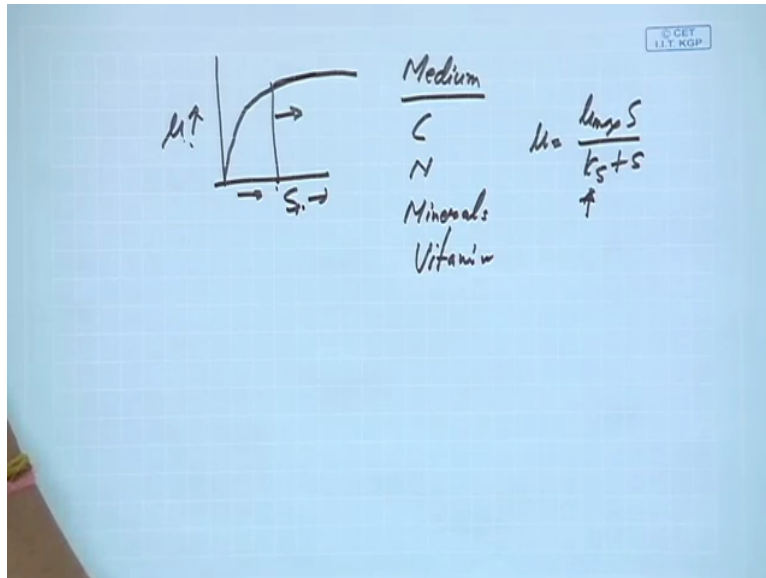 © CET
I.I.T. KGP
Medium
C
N
Minerals
Vitamin
μ ↑
S →
μ = μmax S
Ks + S
↑